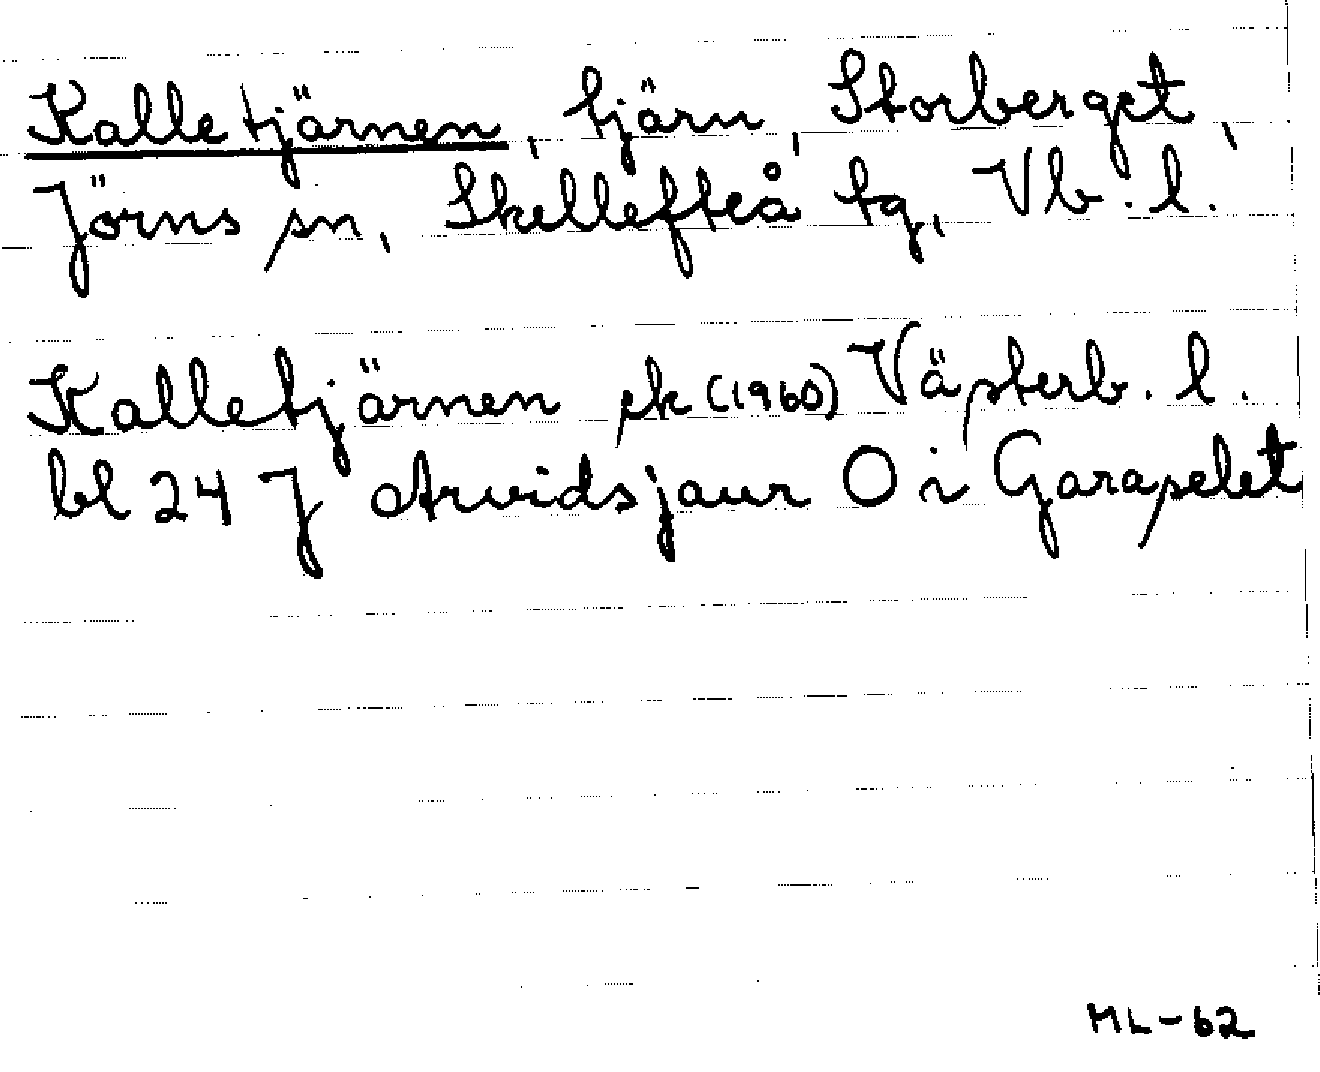 Kalletjärnen, tjärn, Storberget,
Jörns sn, Skellefteå tg, Vb. l.
Kalletjärnen ek (1960) Västerb. l.
bl 24 J Arvidsjaur O i Garaselet
ML-62